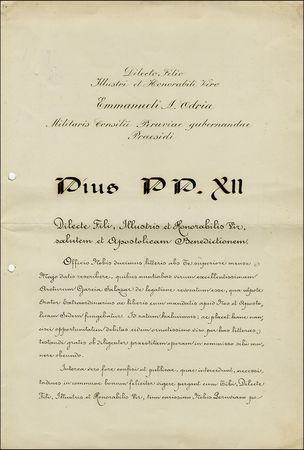 Dilecto Filio
Illustri et Honorabili Viro
Emmanueli A. Odria
Militaris Consilii Peruviae gubernandae
Praesidi
Pius PP. XII
Dilecte Fili, Illustris et Honorabilis Vir,
salutem et Apostolicam Benedictionem.
Officio Nobis ducimus litteris abs Te superiore mense
Majo datis rescribere, quibus nuntiabas virum excellentissimum
Arcturum Garcia Salazar de legatione revocatum esse, qua utpote
Orator Extraordinarius ac liberis cum mandatis apud Nos et Aposto-
licam Sedem fungebatur. Id ratum habuimus; ac placet hanc nan-
cisci opportunitatem debitas eidem ornatissimo viro per has litteras
testandi grates ob diligenter praestitam operam in commisso sibi mu-
nere obeundo.
Interea vero fore confisi ut publicae, quae intercedunt, necessi-
tudines in commune bonum feliciter vigere pergant cum Tibi, Dilecte
Fili, Illustris et Honorabilis Vir, tum carissimo Nobis Peruviano po-